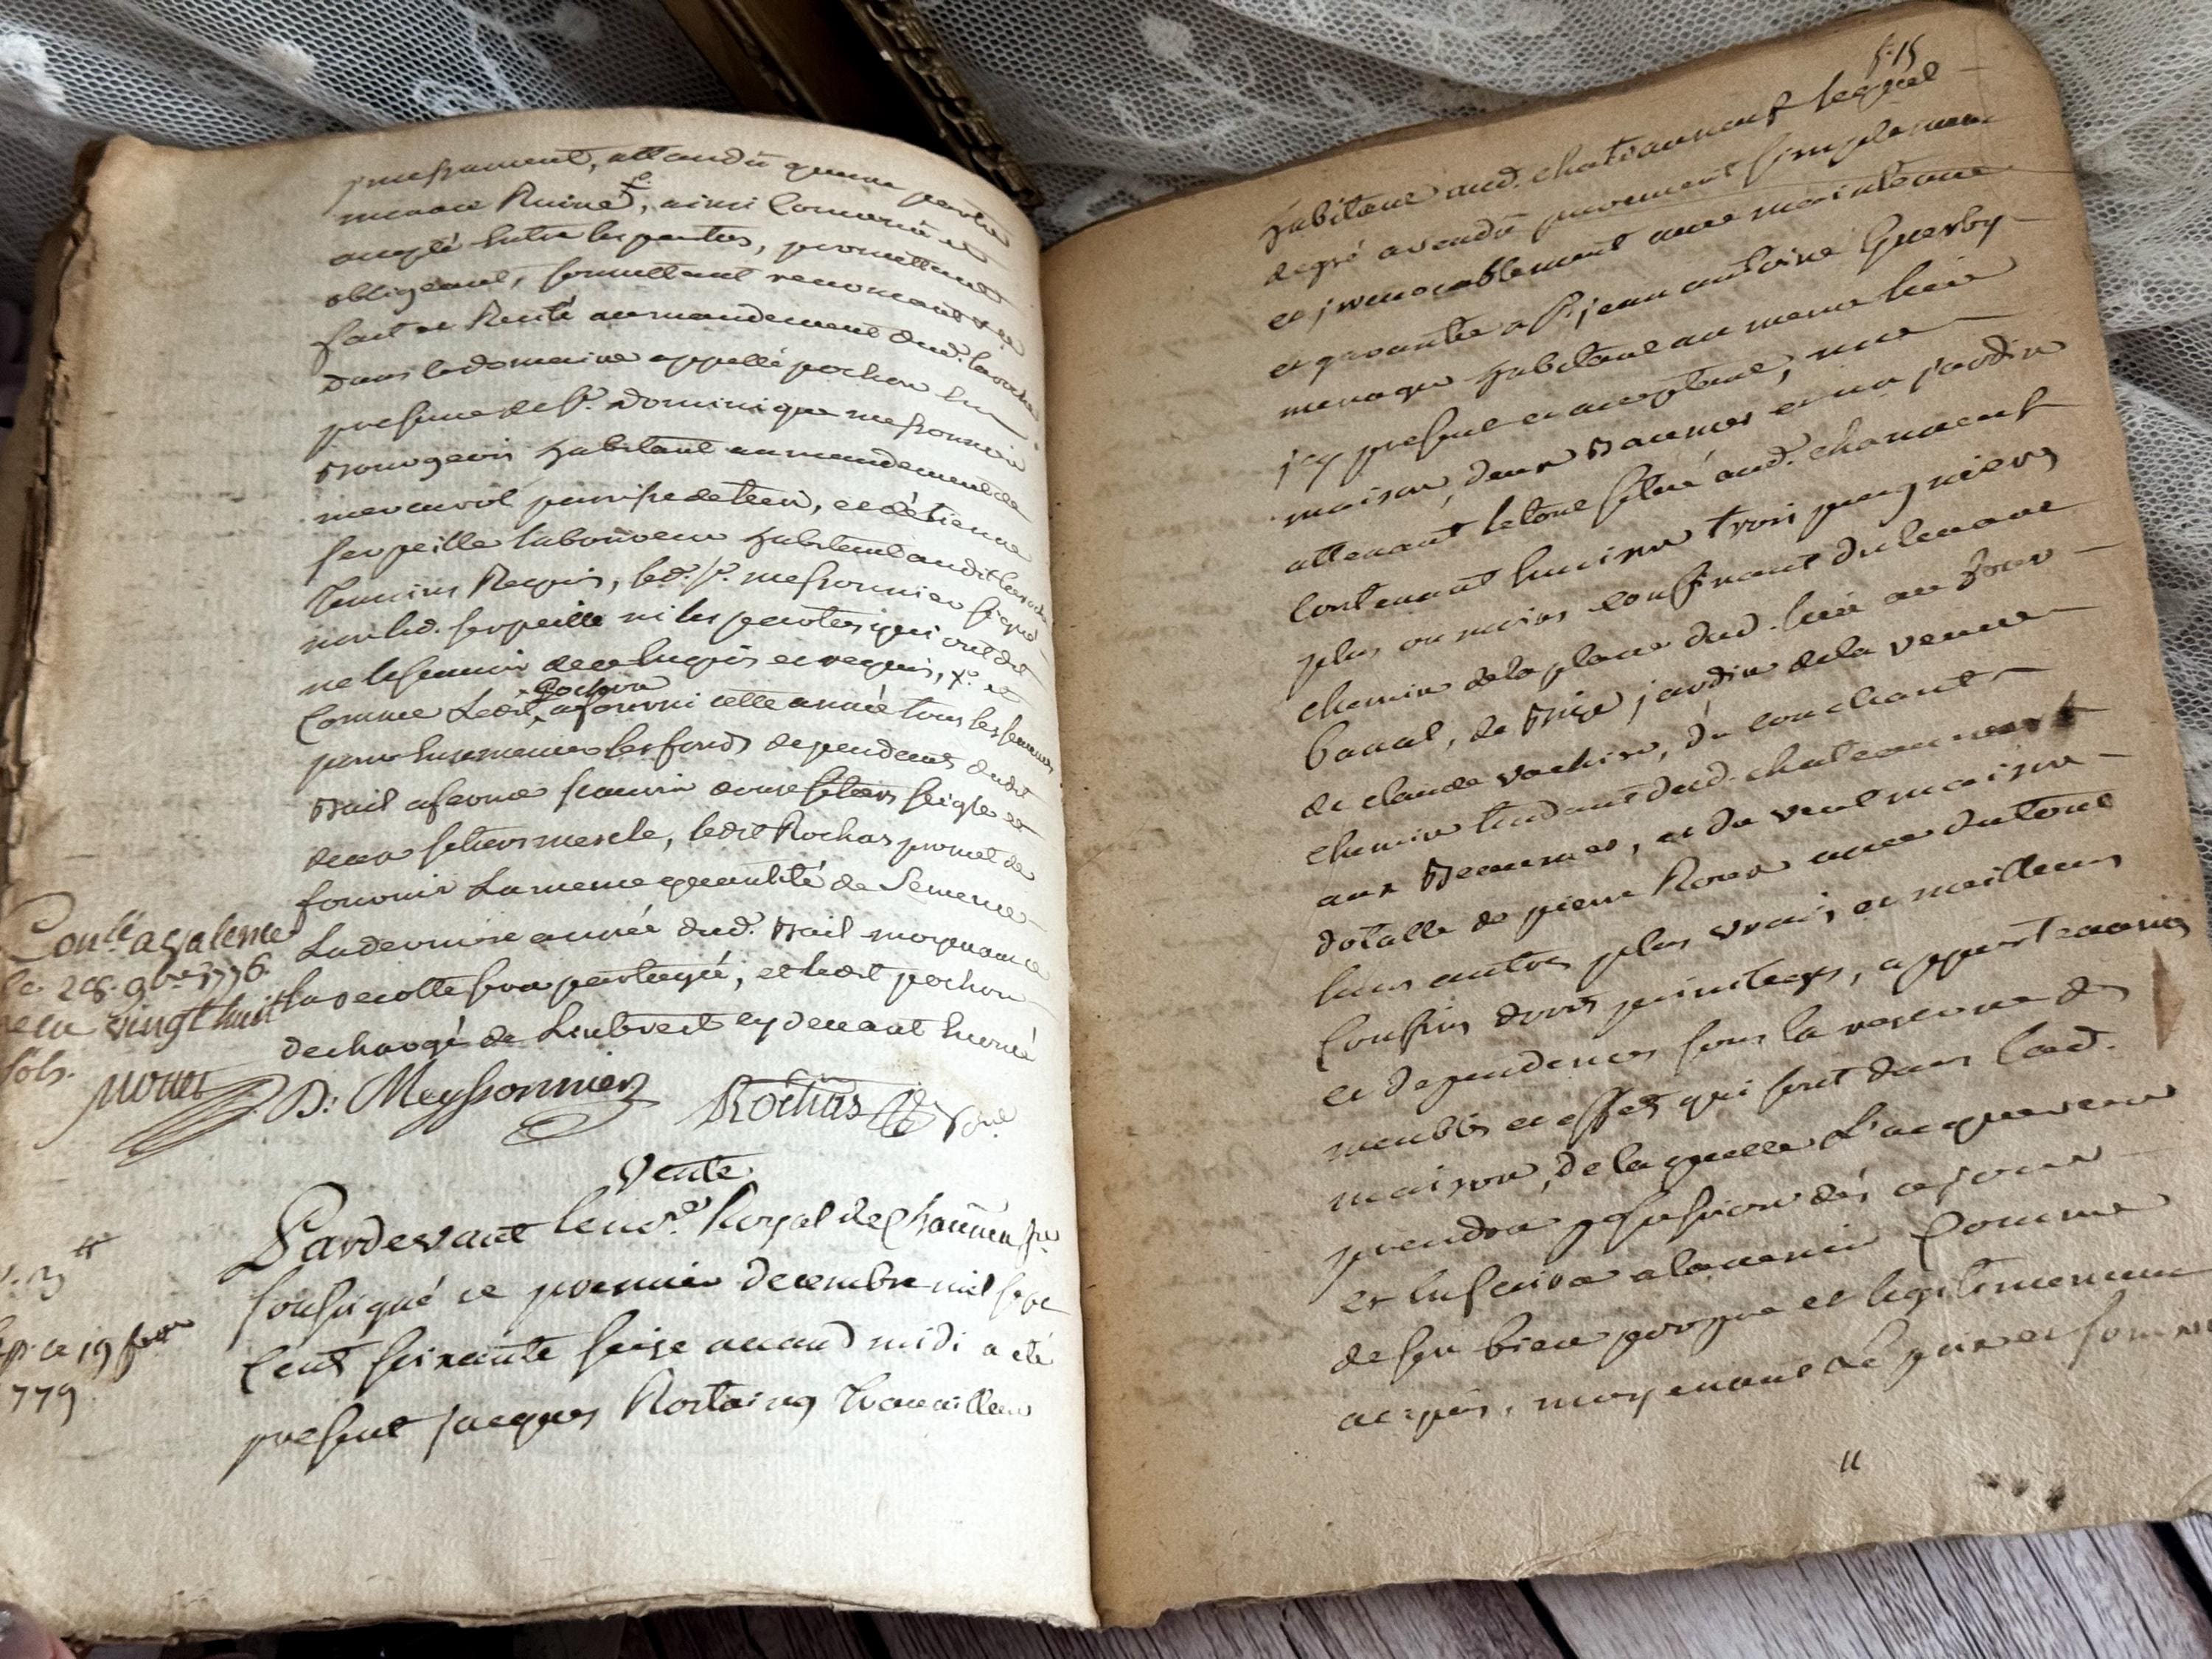 attandu quune partie
menace Ruine, ainsi Convenu et
accepté Entre les parties, promettant
obligeant, soumettant renoncant &c
fait et Recité au mandement dud. laroche
dans le domaine appellé pochon En
presence de Sr. Dominique messonnier
Bourgeois habitant au mandement de
parroisse de et détienne
serpeille laboureur habitant audit laroche
Temoins Requis, led. Sr. messonnier signé
non led. serpeille ni les parties qui ont dit
ne le scavoir de ce Enquis et requis, &
Comme Ledit pochon a fourni cette année tous les semences
pour Ensemencer les fonds dependants dudit
Bail aferme scavoir douse setiers seigle et
deux setiers mescle, ledit Rochas promet de
fournir La meme quantité de Semence
La derniere année dud. Bail moyenant ce
la recolte sera partagée, et ledit pochon
dechargé de Lentrest cy devant Enoncé
Conlé a valence
le 28. 9bre 1776
recu vingt huit
sols.
D. Meyssonnier Rochas
Vente
Pardevant le nore. Royal de
soussigné ce premier decembre mil sept
Cent soixante seise avand midi a été
present jacques Rostaing Travailleur
ce 19
779
habitant aud. chateauneuf lequel
degré a vendu purement simplement
et jrrevocablement avec maintenue
et garantie a Sr. jean antoine Guerby
menager habitant au meme lieu
jcy present et acceptant, une
maison, deux Baumes et un jardin
attenant le tout situé aud. chauneuf
Contenant Environ trois pougnieres
plus ou moins confinant du levant
chemin de la place dud. lieu au four
banal, de Bise jardin de la veuve
de claude vachier, du couchant
chemin tendant dud. chateauneuf
aux Beaumes, et du vent maison
dotalle de pierre Roux avec du tout
leurs autres plus vrais et meilleurs
Confins droits privileges, appartenances
et dependences sous la reserve des
meubles et effets qui sont dans lad.
maison, de laquelle L'acquereur
prendra possession dés ce jour
et En jouira a lavenir Comme
de son bien propre et legitimement
acquis, moyenant le prix et somme